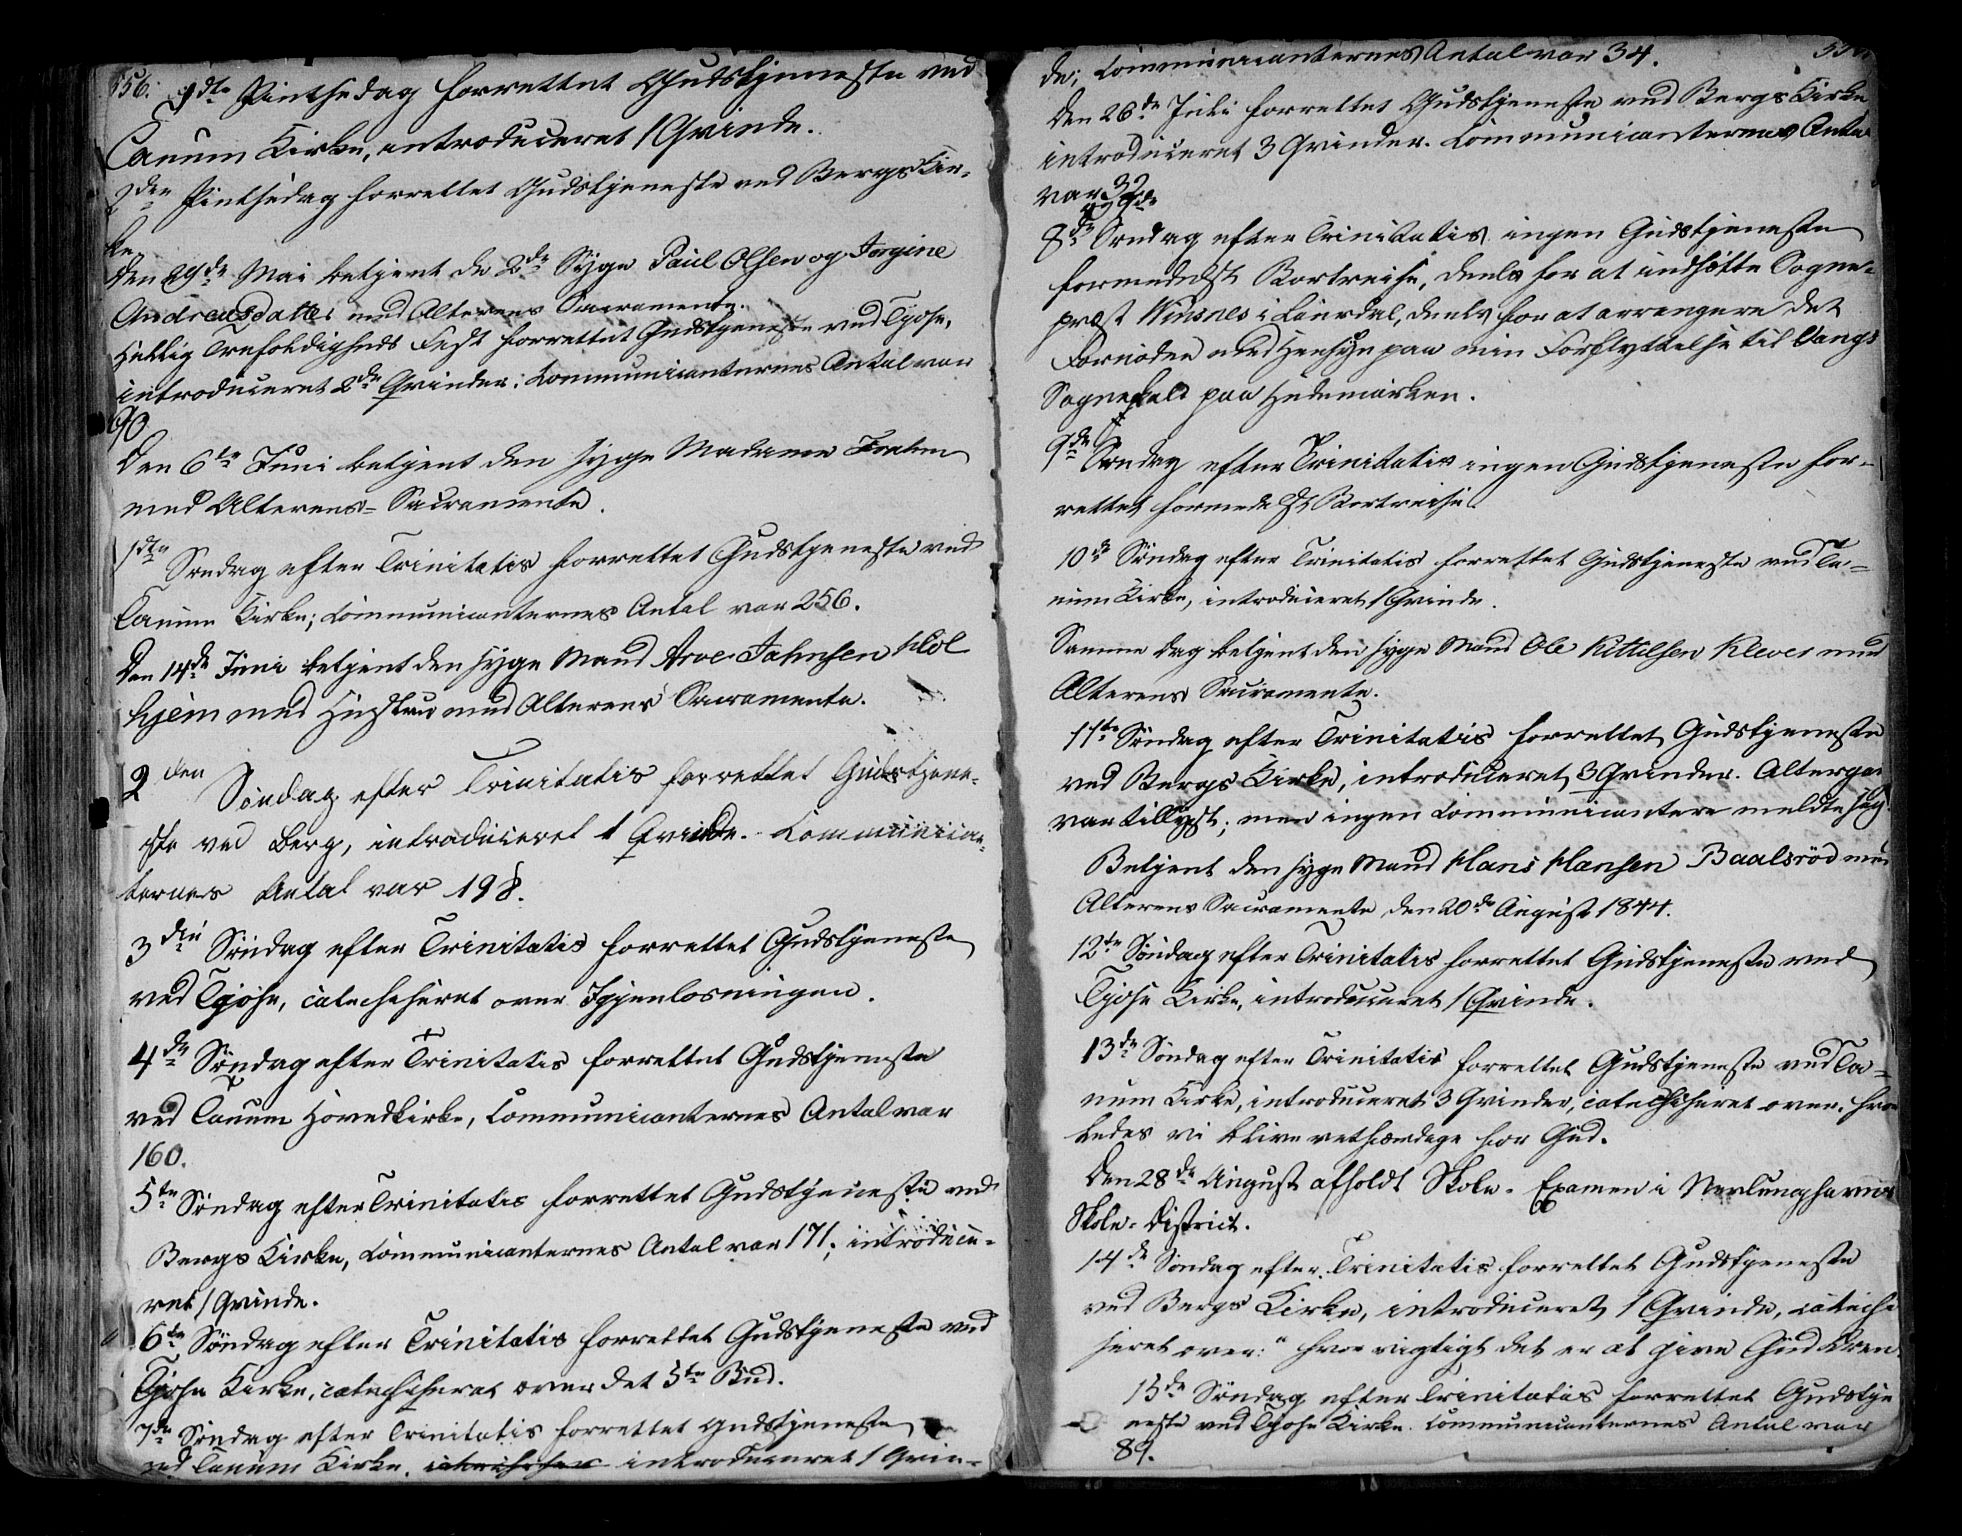 556. 1ste Pintsedag forrettet Gudstjeneste ved
Tanum Kirke, introduceret 1 Qvinde.
2den Pintsedag forrettet Gudstjeneste ved Bergs Kir-
ke
Den 29de Mai betjent de 2de Syge Paul Olsen og Jørgine
Andreasdatter med Alterens Sacramente.
Hellig Trefoldigheds Fest forrettet Gudstjeneste ved Tjøse,
introduceret 2de Qvinder; Communicanternes Antal var
90
Den 6te Juni betjent den syge Madame
med Alterens- Sacramente.
1ste Søndag efter Trinitatis forrettet Gudstjeneste ved
Tanum Kirke; Communicanternes Antal var 256.
Den 14de Juni betjent den syge Mand Arve Jahnsen Hol
hjem med Hustru med Alterens Sacramente.
2den Søndag efter Trinitatis forrettet Gudstjene-
ste ved Berg, introduceret 1 Qvinde. Communican-
ternes Antal var 198.
3die Søndag efter Trinitatis forrettet Gudstjeneste
ved Tjøse, catechiseret over Igjenløsningen.
4de Søndag efter Trinitatis forrettet Gudstjeneste
ved Tanum Hovedkirke, Communicanternes Antal var
160.
5te Søndag efter Trinitatis forrettet Gudstjeneste ved
Bergs Kirke, Communicanternes Antal var 171; introduce-
ret 1 Qvinde.
6te Søndag efter Trinitatis forrettet Gudstjeneste ved
Tjøse Kirke, catechiseret over det 5te Bud.
7de Søndag efter Trinitatis forrettet Gudstjeneste
ved Tanum Kirke, introduceret 1 Qvin-
de; Communicanternes Antal var 34.
Den 26de Juli forrettet Gudstjeneste ved Bergs Kirke
introduceret 3 Qvinder. Communicanternes Antal
var 32
8de Søndag efter Trinitatis ingen Gudstjeneste
formedelst Bortreise, deels for at indsætte Sogne-
præst Winsnes i Laurdal, deels for at arrangere det
Fornødne med Hensyn paa min Forflyttelse til Vangs
Sognekald paa Hedemarken.
9de Søndag efter Trinitatis ingen Gudstjeneste for-
rettet formedelst Bortreise.
10de Søndag efter Trinitatis forrettet Gudstjeneste ved Ta-
num Kirke, introduceret 1 Qvinde.
Samme Dag betjent den syge Mand Ole Kittelsen Klever med
Alterens Sacramente.
11te Søndag efter Trinitatis forrettet Gudstjeneste
ved Bergs Kirke, introduceret 3 Qvinder. Alterga
var tillyst; men ingen Communicantere meldte sig
Betjent den syge Mand Hans Hansen Baalsrød med
Alterens Sacramente den 20de August 1844.
12te Søndag efter Trinitatis forrettet Gudstjeneste ved
Tjøse Kirke, introduceret 1 Qvinde.
13de Søndag efter Trinitatis forrettet Gudstjeneste ved Ta-
num Kirke, introduceret 3 Qvinder, catechiseret over. hvor
ledes vi blive retfærdige for Gud.
Den 28de August afholdt Skole- Examen i Nevlunghavns
Skole- District.
14de Søndag efter Trinitatis forrettet Gudstjeneste
ved Bergs Kirke, introduceret 1 Qvinde, catechi
seret over: "hvor vigtigt det er at give Gud Æren.
15de Søndag efter Trinitatis forrettet Gudstje
neste ved Tjøse Kirke. Communicanternes Antal var
89.